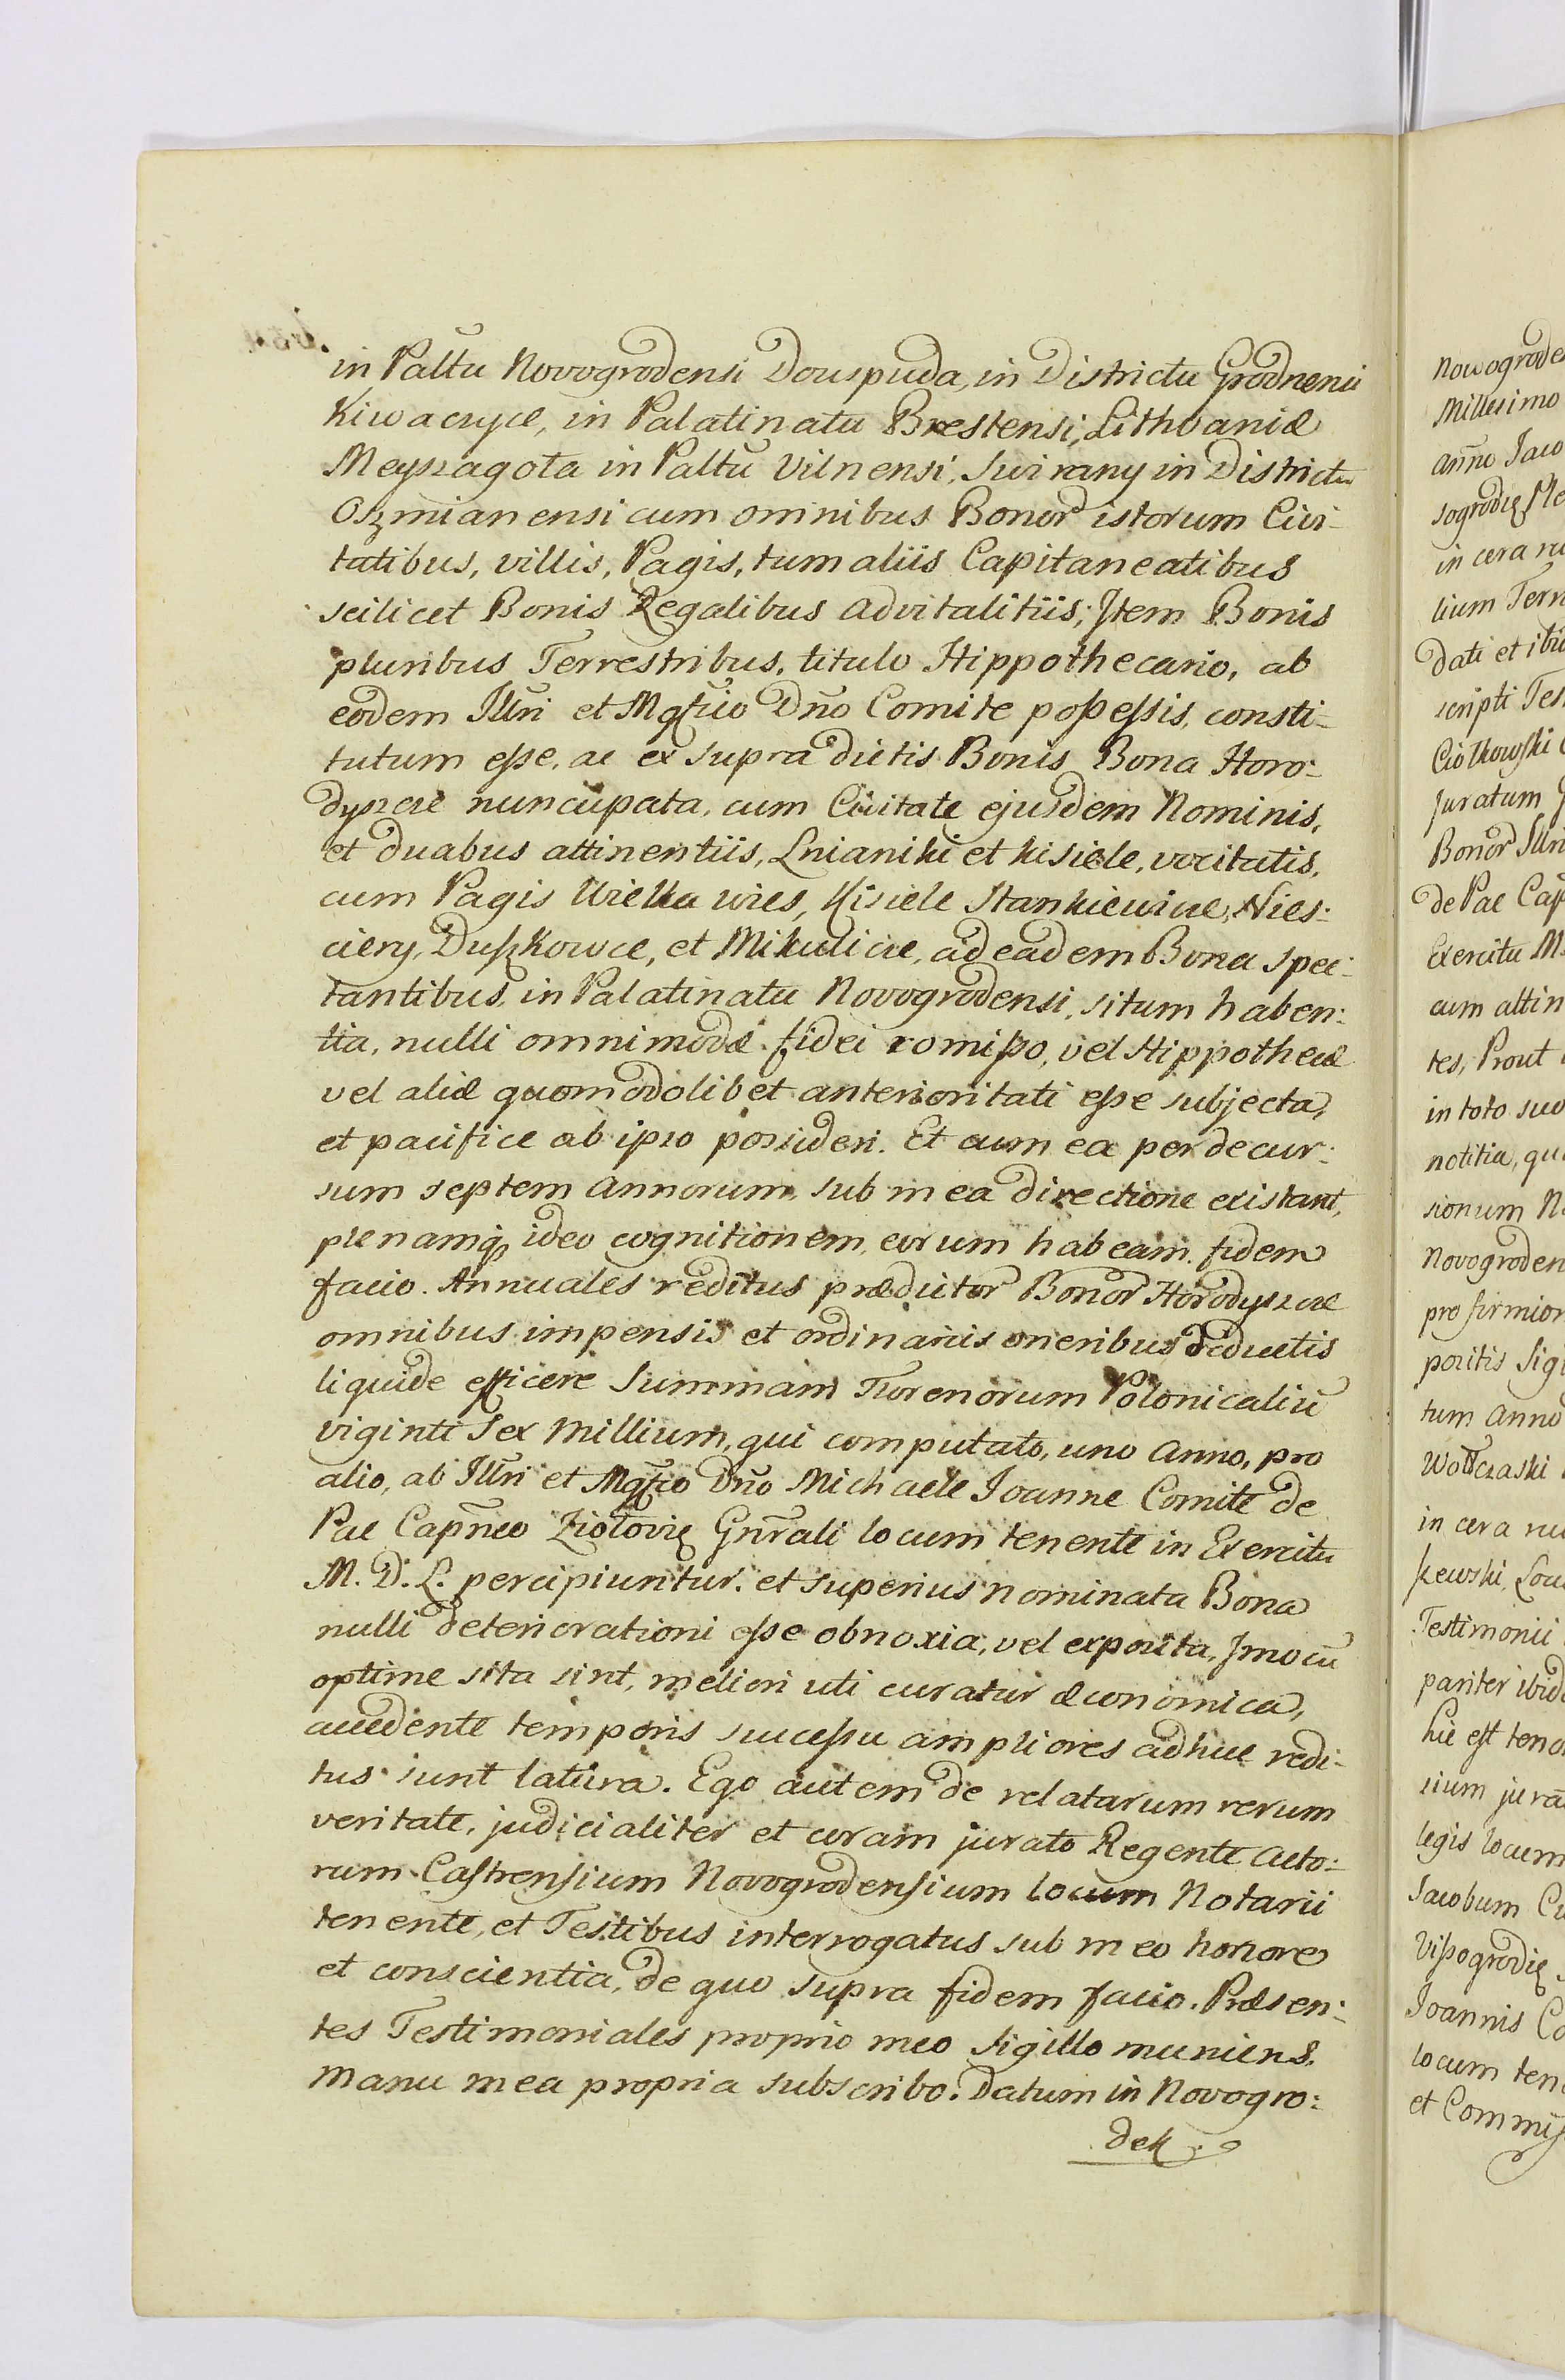 in Paltu Novogrodensi Douspuda, in Districtu Grodnensi
Kiwaczyce, in Palatinatu Brestensi, Lithvaniæ
Meyszagota in Paltu Vilnensi, Swirany in Districtu
Oszmianensi cum omnibus Bonor istorum Civi-
tatibus, villis, Pagis, tum aliis Capitaneatibus
scilicet Bonis Regalibus advitalitiis; Item Bonis
pluribus Terrestribus, titulo Hippothecario, ab
eodem Illri et Mgfico Dno Comite possessis, consti-
tutum esse, ac ex supra dictis Bonis Bona Horo-
dyszcze nuncupata, cum Civitate ejusdem Nominis,
et duabus attinentiis, Lnianiki et kisiele, vocitatis,
cum Pagis Wielka wies, Kisiele Stankiewicze, Nies-
ciery, Duszkowce, et Mikulicze, ad eadem Bona spec-
tantibus, in Palatinatu Novogrodensi, situm haben-
tia, nulli omnimodæ fidei comisso, vel Hippothecæ
vel aliæ quomodolibet anterioritati esse subjecta,
et pacifice ab ipso possideri. Et cum ea per decur-
sum septem Annorum, sub mea directione existant,
plenamq ideo cognitionem, eorum habeam. fidem
facio. Annuales reditus prædictor Bonor Horodyszcze
omnibus impensis et ordinariis oneribus deductis
liquide efficere Summam Florenorum Polonicaliu
viginti Sex Millium, qui computato, uno Anno, pro
alio, ab Illri et Mgfico Dno Michaele Ioanne Comite de
Pac Capneo Ziotovię Gnrali locum tenente in Exercitu
M. D. L. percipiuntur. et superius nominata Bona
nulli deteriorationi esse obnoxia, vel exposita, Imo cu
optime sita sint, meliori uti curatur æconomica,
accedente temporis successu ampliores adhuc redi-
tus sunt latura. Ego autem de relatarum rerum
veritate, judicialiter et coram jurato Regente Acto-
rum Castrensium Novogrodensium locum Notarii
tenente, et Testibus interrogatus sub meo honore
et conscientia, de quo supra fidem facio. Præsen-
tes Testimoniales proprio meo Sigillo muniens.
Manu mea propria subscribo. Datum in Novogro-
dek
Nowogrode
Millesimo
anno Jaco
in cera ru
lium Terr
Dati et ibi
scripti Tes
Ciolkowski
Juratum
Bonor Illri
de Pac Cap
Exercitu M.
cum attin
tes, Prout
in toto suo
notitia, qu
sionum N
Novogroden
pro firmior
positis Sigi
tum Anno
in cera ru
Testimonii
pariter ibid
hic est teno
sium jura
legis locum
Jacobum
Ioannis Co
locum ten
et Commis